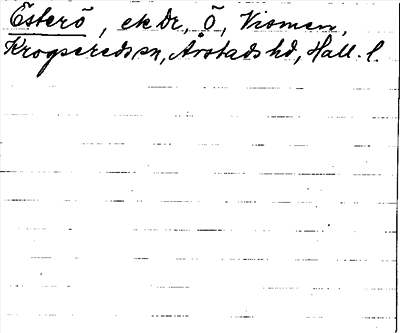 Esterö, ek dr, Ö, Vismen,
Krogsereds sn, Årstads hd, Hall. l.